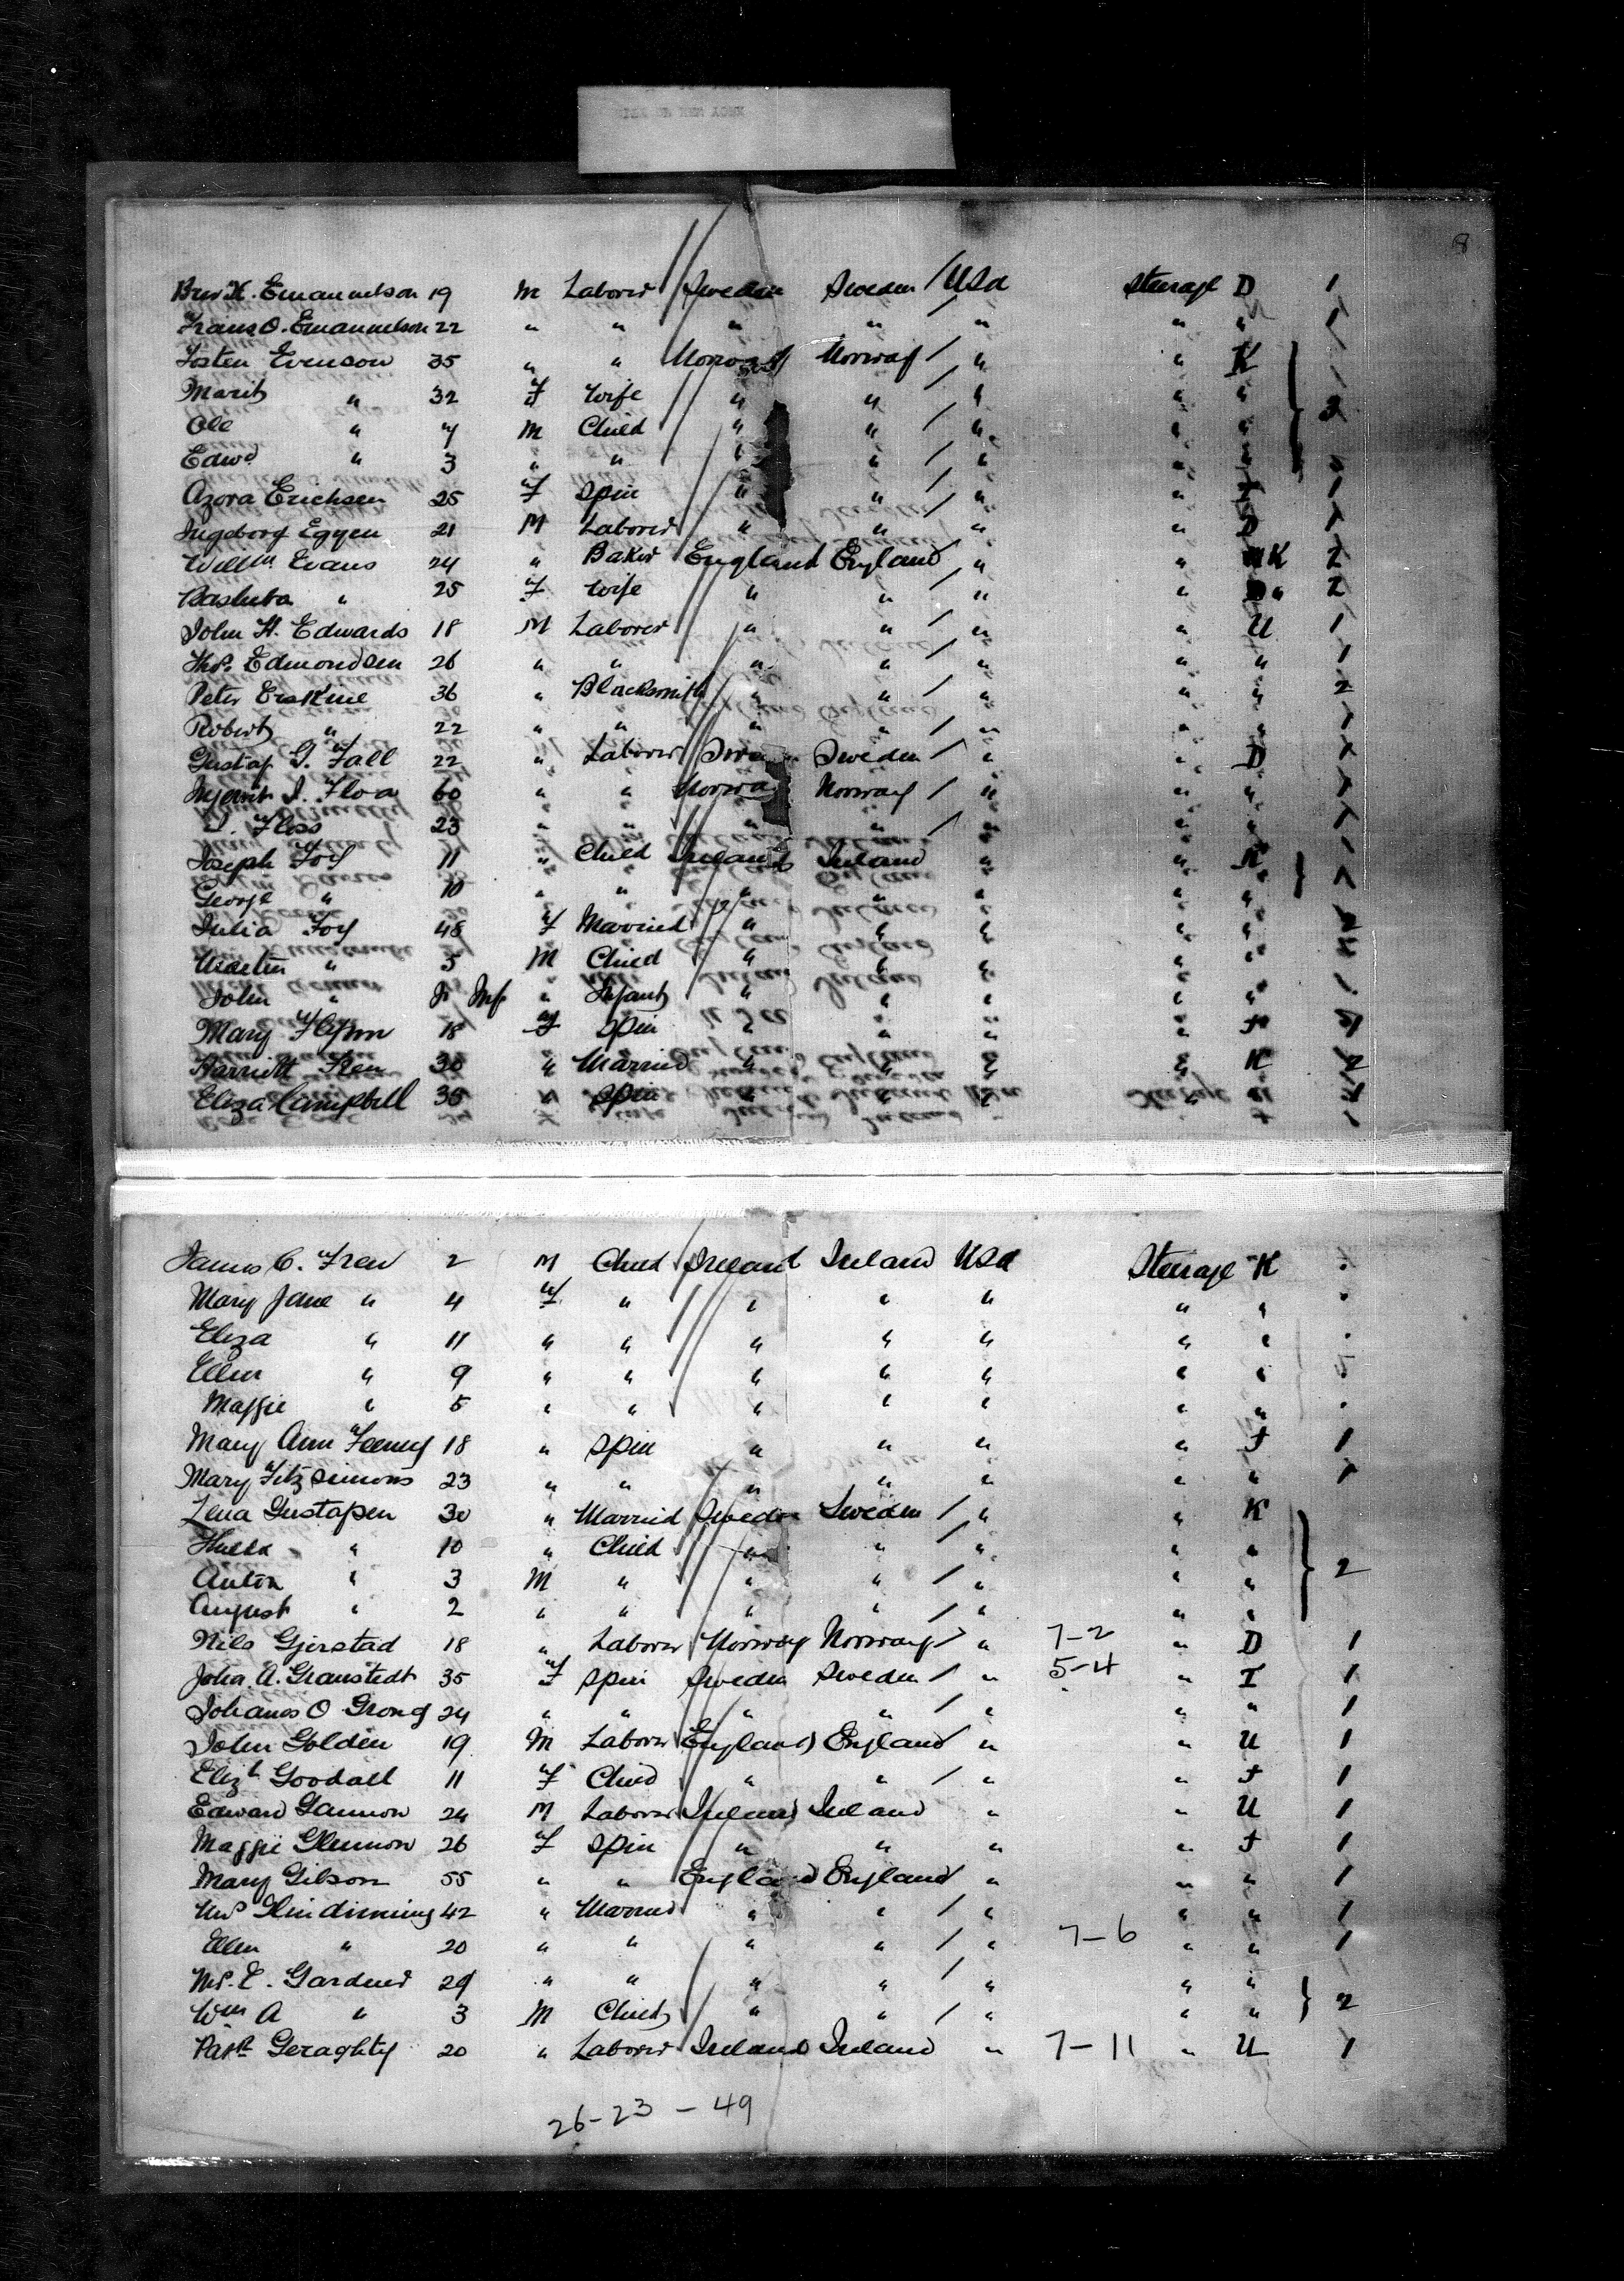 8
Emanuelson 19 M Laborer Sweden Sweden / USa Steerage D 1
Frans O. Emanuelson 22 " " " " / " " " 1
Tosten Evenson 35 " " Norway Norway / " " K
Marit " 32 F Wife " " / " " "
Ole " 7 M Child " " / " " " 3
Edwd " 3 " " " " / " " "
Azora Erichsen 25 F Spin " " / " " 1
Ingeborg Eggen 21 M Laborer " " " " D 1
Willm Evans 24 " Baker England England / " " K 2
Bashuba " 25 F Wife " " " " " 2
John H. Edwards 18 M Laborer " " / " " U 1
Thos. Edmondson 26 " " " " / " " " 1
Peter Erskine 36 " Blacksmith " " / " " " 2
Robert " 22 " " " " / " " " 1
Gustaf G. Fall 22 " Laborer Swe Sweden / " " D 1
I. Floa 60 " " Norway Norway / " " " 1
Floss 23 " " " " / " " " 1
Joseph Foy 11 " Child Ireland Ireland " " K
George " 10 " " " " " " "
Julia Foy 48 F Married " " " " "
Martin " 5 M Child " " " " "
John " Inf " Infant " " " " "
Mary Flynn 18 F Spin " " " " F
Harriett Frew 30 " Married " " " " K
Eliza Campbell 30 " Spin " " " "
James C. Frew 2 M Child Ireland Ireland USa Steerage K
Mary Jane " 4 F " " " " " "
Eliza " 11 " " " " " " "
Ellen " 9 " " " " " " "
Maggie " 5 " " " " " "
Mary Ann Feeney 18 " Spin " " " " F 1
Mary Fitzsimons 23 " " " " " " " 1
Lena Gustafsen 30 " Married Sweden Sweden / " " K
Hulda " 10 " Child " " / " " "
Anton " 3 M " " " / " " " 2
August " 2 " " " " / " " "
Nils Gjerstad 18 " Laborer Norway Norway / " 7-2 " D 1
Joha. A. Granstedt 35 F Spin Sweden Sweden / " 5-4 " F 1
Johanes O Grong 24 " " " " / " " " 1
John Golden 19 M Laborer England England / " " U 1
Elizh Goodall 11 F Child " " / " " F 1
Edward Gannon 24 M Laborer Ireland Ireland " " U 1
Maggie Glennon 26 F Spin " " " " F 1
Mary Gibson 55 " " England England / " " " 1
Mrs Glindinning 42 " Married " " / " " " 1
Ellen " 20 " " " " / " 7-6 " " 1
Mrs. E. Gardner 29 " " " " / " " "
Wm A " 3 M Child " " / " " " 2
Patk Geraghty 20 " Laborer Ireland Ireland " 7-11 " U 1
26-23 - 49